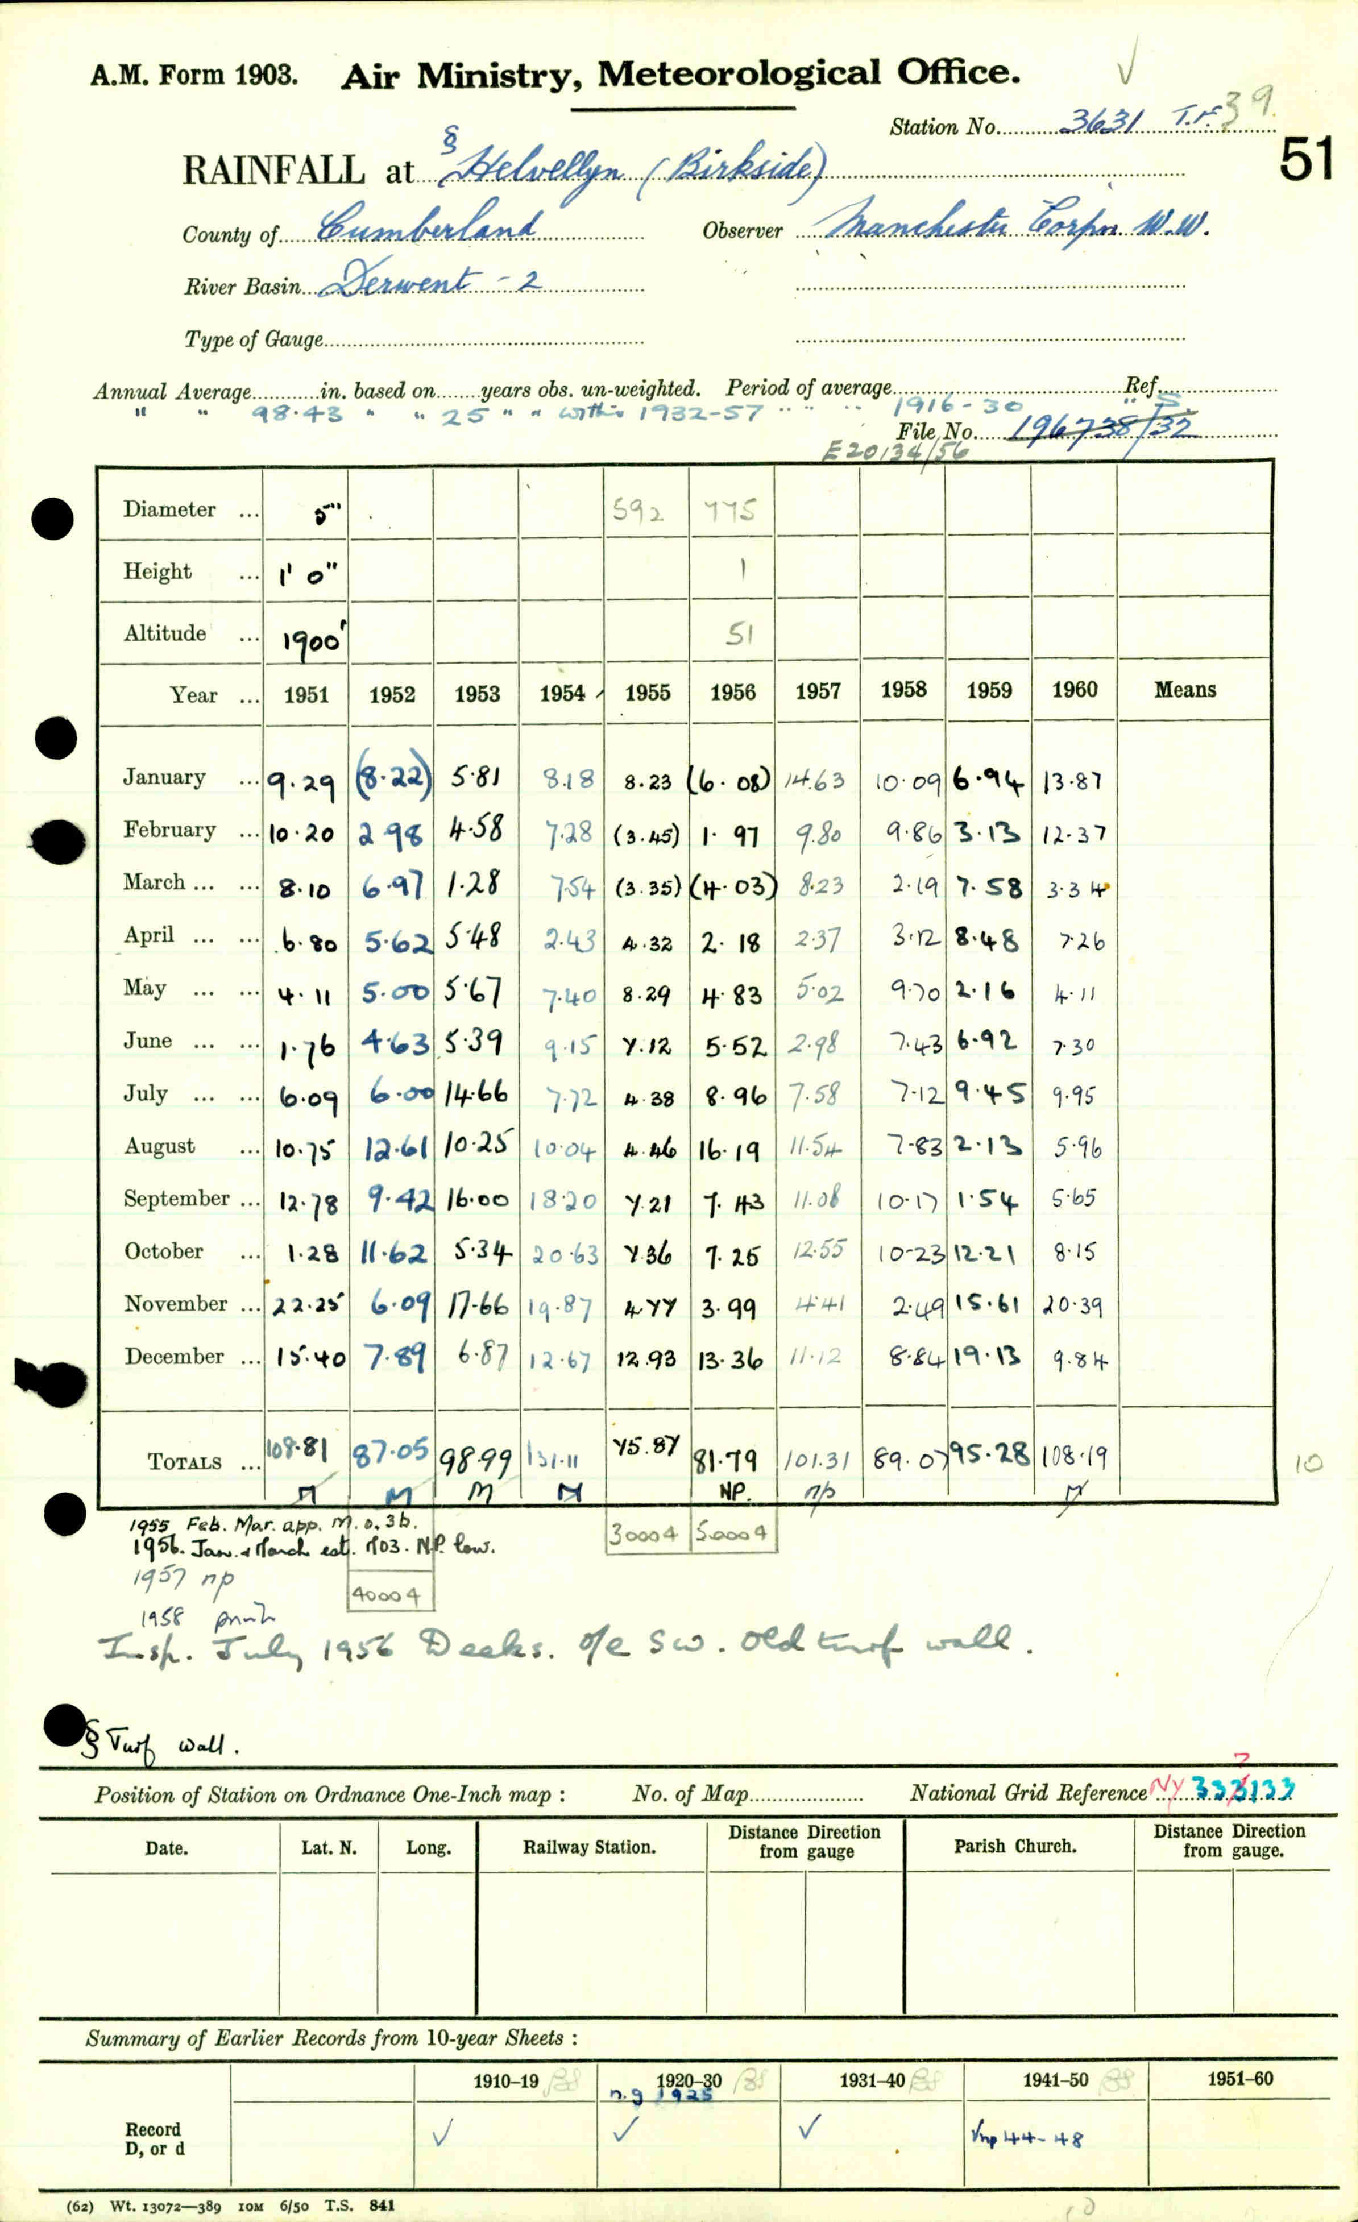 A.M. Form 1903. Air Ministry, Meteorological Office. ✓
Station No. 3631 T.F. 39.
51
RAINFALL at § Helvellyn (Birkside)
County of Cumberland Observer Manchester Corpn W.W.
River Basin Derwent - 2
Type of Gauge
Annual Average in. based on years obs. un-weighted. Period of average Ref.
" " 98.43 " " 25 " " within 1932-57 " " " 1916-30 " S.
File No. 196738/32
E20134/56
Diameter ... 5" 592 775
Height ... 1' 0" 1
Altitude ... 1900' 51
Year ... 1951 1952 1953 1954 1955 1956 1957 1958 1959 1960 Means
January ... 9.29 (8.22) 5.81 8.18 8.23 (6.08) 14.63 10.09 6.94 13.87
February ... 10.20 2.98 4.58 7.28 (3.45) 1.97 9.80 9.86 3.13 12.37
March ... ... 8.10 6.97 1.28 7.54 (3.35) (4.03) 8.23 2.19 7.58 3.34
April ... ... 6.80 5.62 5.48 2.43 4.32 2.18 2.37 3.12 8.48 7.26
May ... ... 4.11 5.00 5.67 7.40 8.29 4.83 5.02 9.70 2.16 4.11
June ... ... 1.76 4.63 5.39 9.15 7.12 5.52 2.98 7.43 6.92 7.30
July ... ... 6.09 6.00 14.66 7.72 4.38 8.96 7.58 7.12 9.45 9.95
August ... 10.75 12.61 10.25 10.04 4.46 16.19 11.54 7.83 2.13 5.96
September ... 12.78 9.42 16.00 18.20 7.21 7.43 11.08 10.17 1.54 5.65
October ... 1.28 11.62 5.34 20.63 7.36 7.25 12.55 10.23 12.21 8.15
November ... 22.25 6.09 17.66 19.87 4.77 3.99 4.41 2.49 15.61 20.39
December ... 15.40 7.89 6.87 12.67 12.93 13.36 11.12 8.84 19.13 9.84
TOTALS ... 108.81 87.05 98.99 131.11 75.87 81.79 101.31 89.07 95.28 108.19 10
M M M M NP. np M
1955 Feb. Mar. app. M.O. 3b. 30004 50004
1956. Jan. & March est. M03. N.P. low.
1957 np
40004
1958 
Insp. July 1956 Deeks. o/e SW. Old turf wall.
§ Turf wall.
Position of Station on Ordnance One-Inch map : No. of Map National Grid Reference NY 333133
7
Date. Lat. N. Long. Railway Station. Distance from Direction gauge Parish Church. Distance from Direction gauge.
Summary of Earlier Records from 10-year Sheets :
1910–19 1920–30 1931–40 1941–50 1951–60
n.g 1925
Record D, or d ✓ ✓ ✓ np 44-48
(62) Wt. 13072—389 10M 6/50 T.S. 841